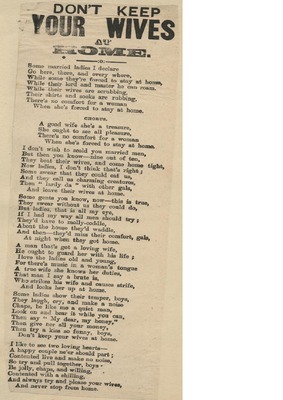 DON'T KEEP
YOUR WIVES
AT
HOME.
Some married ladies I declare
Go here, there, and every where,
While some they're forced to stay at home,
While their lord and master he can roam.
While their wives are scrubbing,
Their shirts and socks are rubbing,
There's no comfort for a woman
When she's forced to stay at home.
CHORUS.
A good wife she's a treasure,
She ought to see all pleasure,
There's no comfort for a woman
When she's forced to stay at home.
I don't wish to scold you married men,
But then you know—nine out of ten,
They bout their wives, and come home tight,
Now ladies, I don't think that's right;
Some swear that they could eat us,
And they call us charming creatures,
Then " lardy da " with other gals,
And leave their wives at home.
Some gents you know, now—this is true,
They swear without us they could do,
But ladies, that is all my eye,
If I had my way all men should try;
They'd have to molly-coddle,
About the house they'd waddle,
And then—they'd miss their comfort, gals,
At night when they got home.
A man that's got a loving wife,
He ought to guard her with his life;
Here the ladies old and young,
For there's music in a woman's tongue
A true wife she knows her duties,
That man I say a brute is,
Who strikes his wife and causes strife,
And locks her up at home.
Some ladies show their temper, boys,
They laugh, cry, and make a noise
Chaps, be like me a quiet man,
Look on and bear it while you can,
Then say " My dear, my honey,"
Then give her all your money,
Then try a kiss so funny, boys,
Don't keep your wives at home.
I like to see two loving hearts—
A happy couple ne'er should part;
Contented live and make no noise,
So try and pull together, boys.
Be jolly, chaps, and willing,
Contented with a shilling,
And always try and please your wives,
And never stop from home.